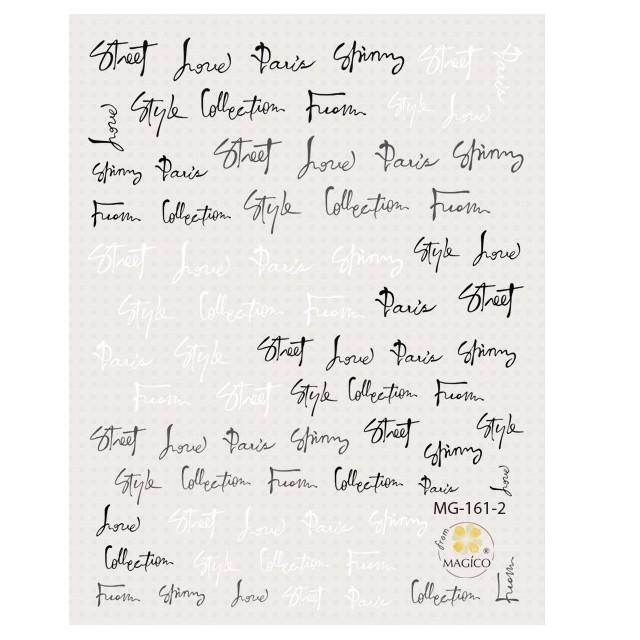 Street Love Paris Spinny Street Paris
Love Style Collection From Style Love
Spinny Paris Street Love Paris Spinny
From Collection Style Collection From
Street Love Paris Spinny Style Love
Style Collection From Paris Street
Paris Style Street Love Paris Spinny
From Street Style Collection From
Street Love Paris Spinny Street Spinny Style
Style Collection From Collection Paris Love
MG-161-2
Love Street Love Paris Spinny
from
MAGÍCO®
Collection Style Collection From
From Spinny Love Street Paris Collection From